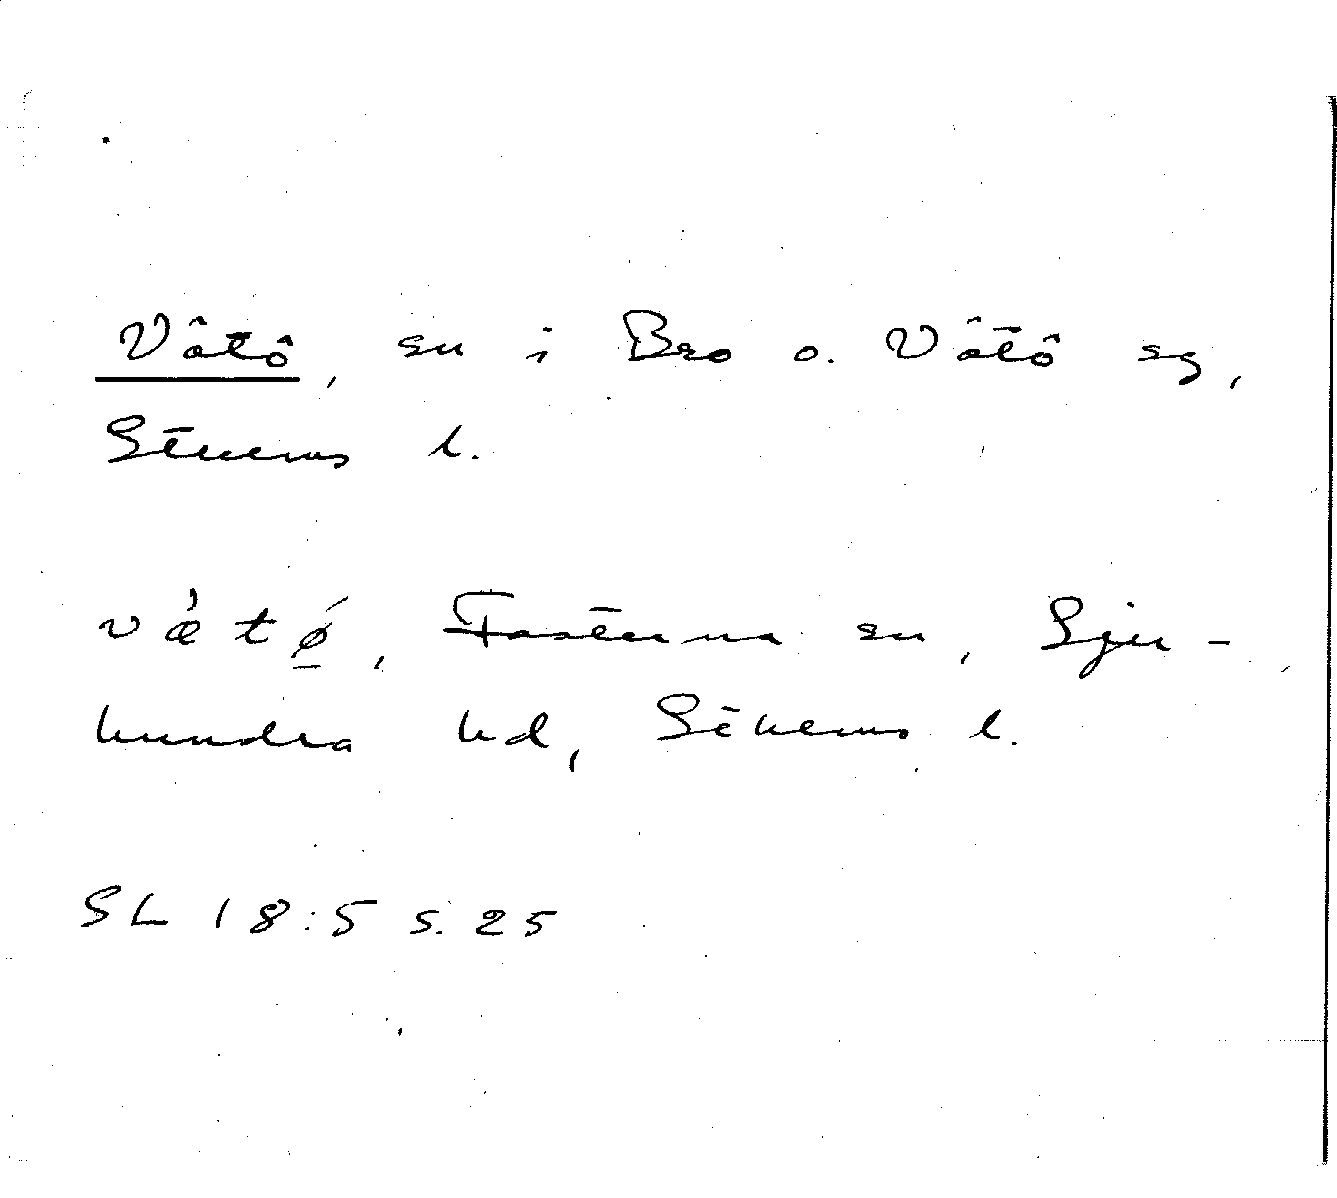 Vätö, sn i Bro o. Vätö sg,
Sthlms l.
v æ̀ t ǿ̠, Fasterna sn, Sju-
hundra hd, Sthlms l.
SL 18:5 s. 25